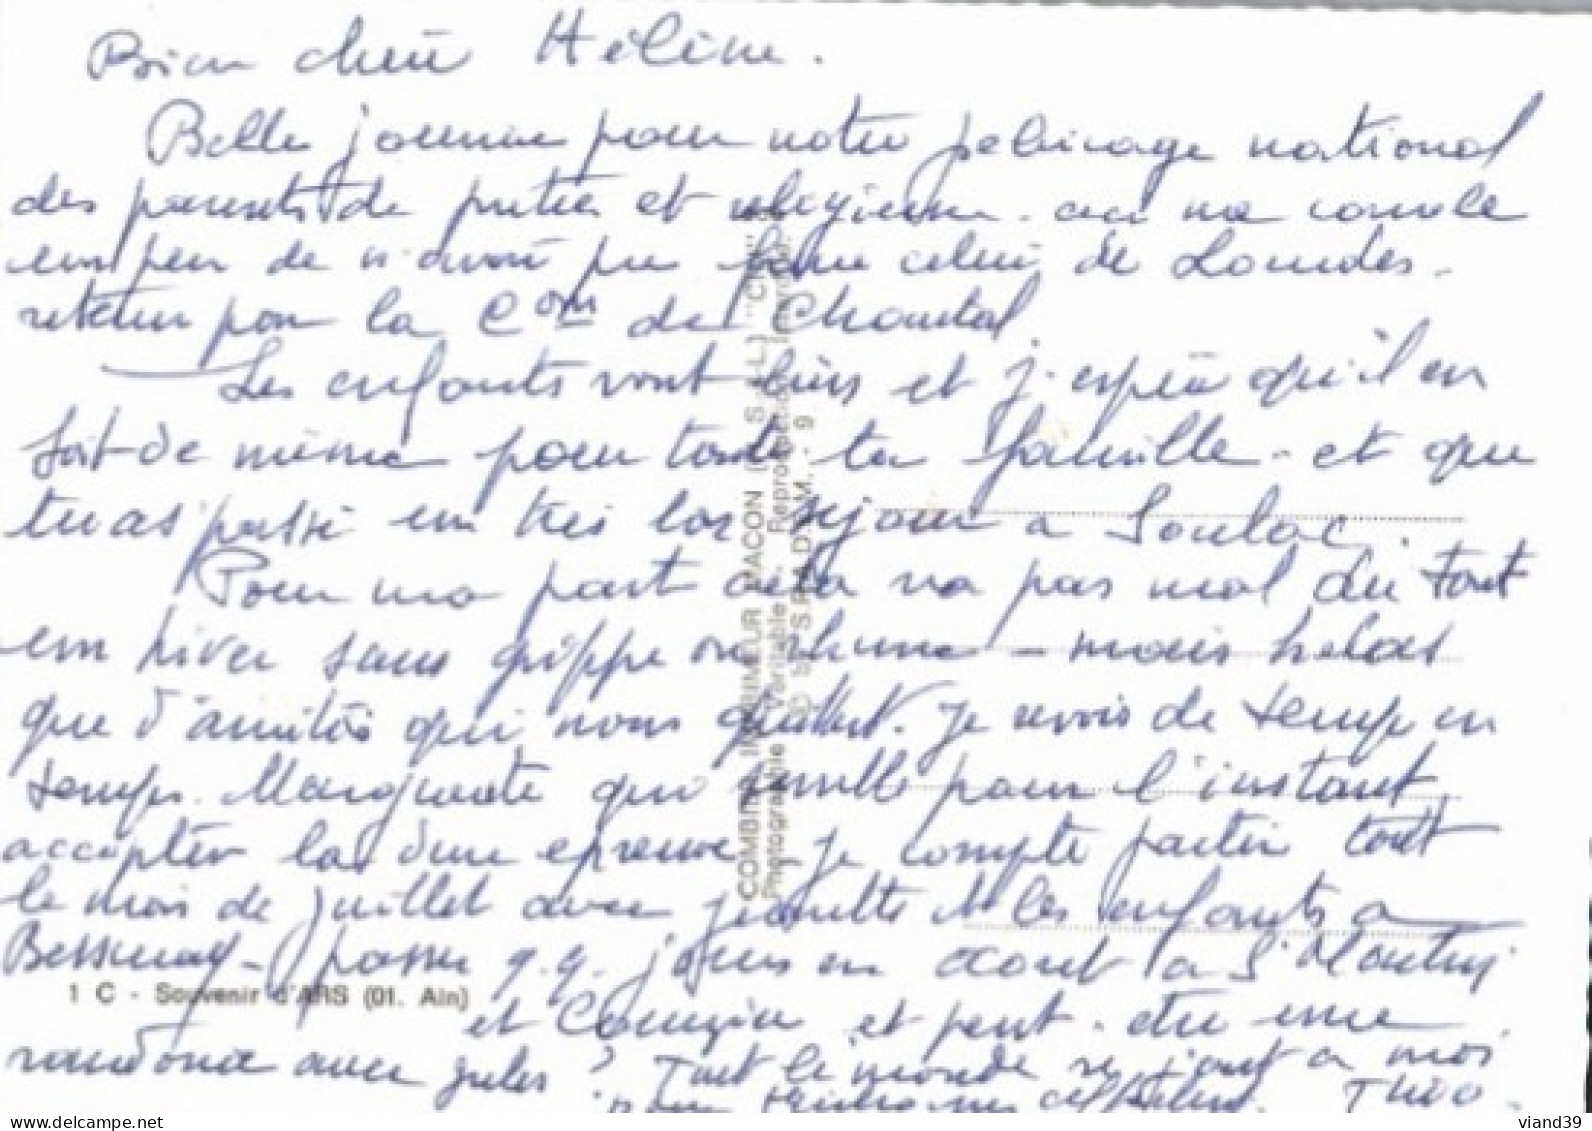 Bien chère Hélène.
Belle journée pour notre pelerinage national
des parents de pretres et religieuses. ceci me console
un peu de n'avoir pu faire celui de Lourdes.
retenu par la Com de Chantal.
Les enfants vont biens et j'espère qu'il en
soit de même pour toute ta famille - et que
tu as passé un très bon séjour a Soulac.
Pour ma part cela va pas mal du tout
un hiver sans grippe ou rhume - mais helas
que d'amitiés qui nous quittent. Je revois de temps en
temps. Marguerite qui semble pour l'instant
accepter la dure epreuve. Je compte partir tout
le mois de juillet avec et les enfants a
Bessenay - passer q.q. jours en aout a St
et et peut-etre une
randonnée avec Jules ? Tout le monde se joint a moi
pour
1 C - Souvenir d'ARS (01. Ain)
COMBIER IMPRIMEUR MACON (S.A.L.) "CIM"
Photographie Véritable. Reproduction Interdite
© by S.P.A.D.E.M. - 9
viand39